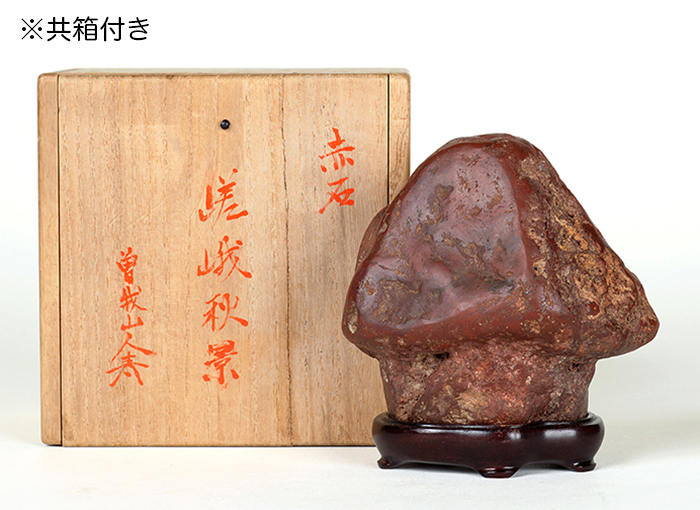 ※共箱付き
赤石
嵯峨秋景
曽我山人